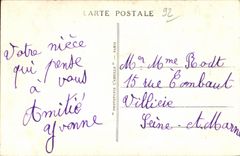 CARTE POSTALE
92
Votre nièce
qui pense
à vous
Amitié
Yvonne
Mr Mme Rodt
15 rue Combault
Villiers
Seine-et-Marne